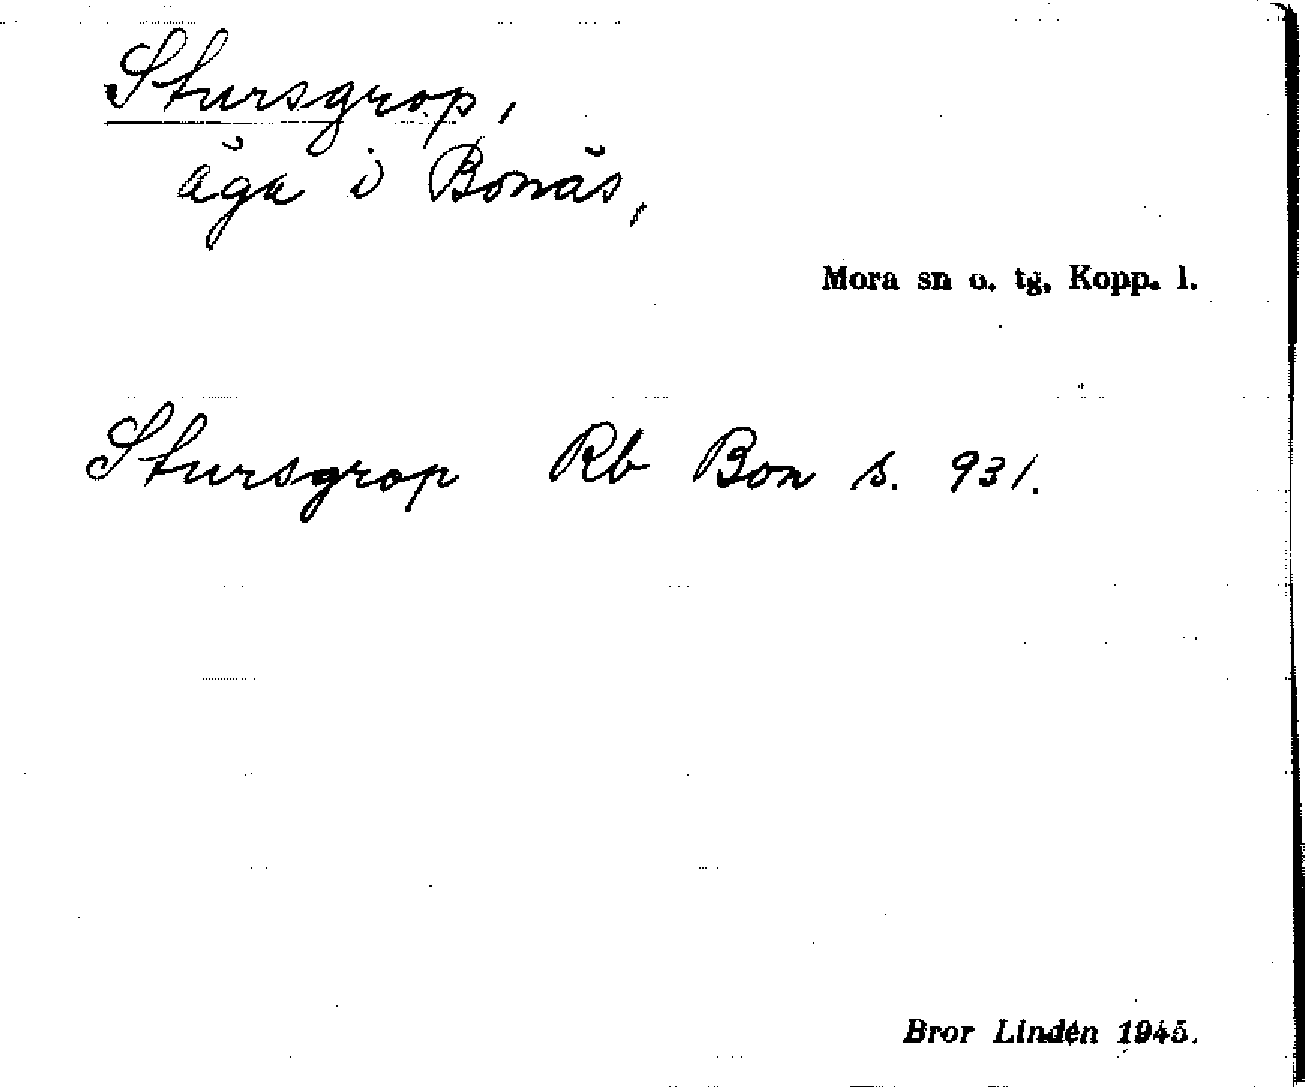 Stursgrop,
äga i Bonäs,
Mora sn o. tg, Kopp. l.
Stursgrop Rb Bon s. 931.
Bror Lindén 1945.